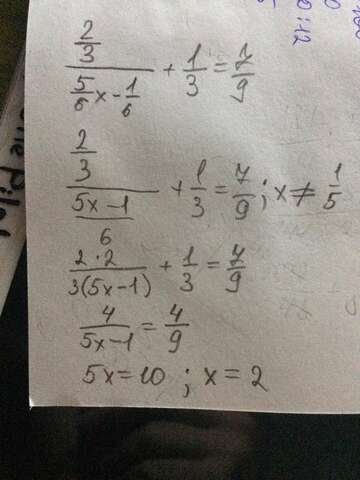 (2/3)/(5/6 x - 1/6) + 1/3 = 7/9
(2/3)/((5x-1)/6) + 1/3 = 7/9 ; x ≠ 1/5
(2·2)/(3(5x-1)) + 1/3 = 7/9
4/(5x-1) = 4/9
5x = 10 ; x = 2